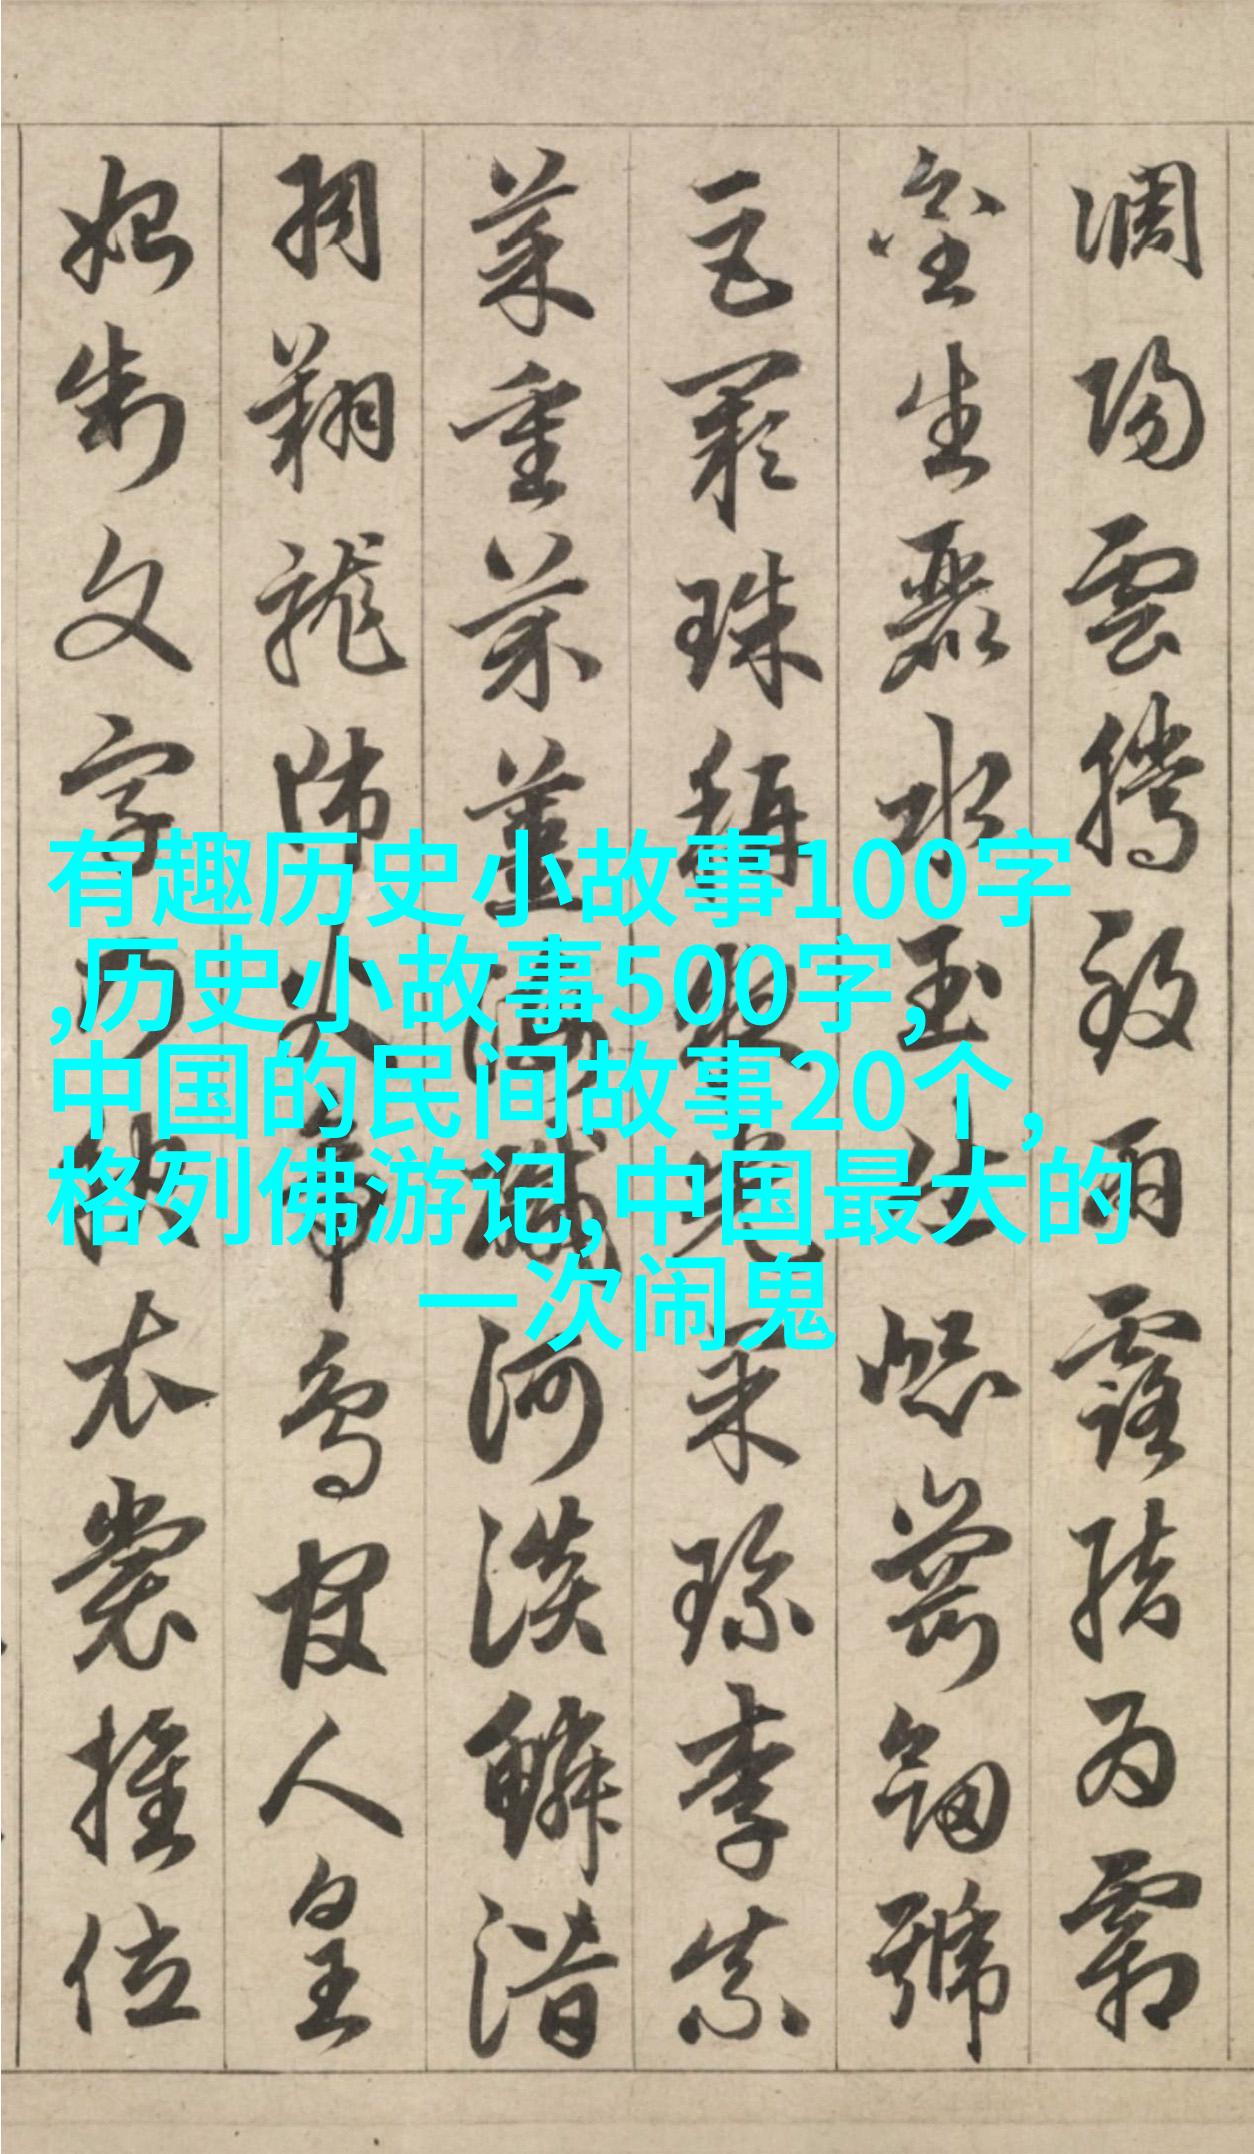 調陽雲騰致雨露結為霜
金生麗水玉出崑崗劍號
巨闕珠稱夜光果珍李柰
菜重芥薑海鹹河淡鱗潛
羽翔龍師火帝鳥官人皇
始制文字乃服衣裳推位
有趣历史小故事100字
,历史小故事500字,
中国的民间故事20个,
格列佛游记,中国最大的
一次闹鬼